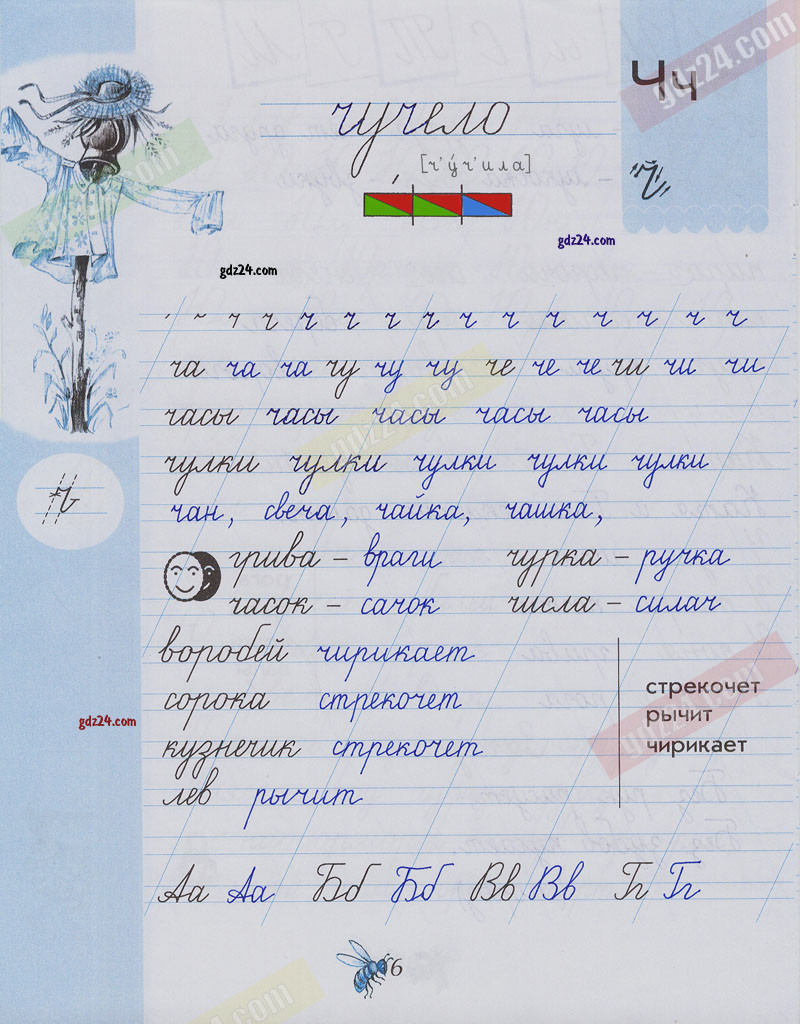 Чч
чучело
[ч'у́ч'ила]
ч
gdz24.com
gdz24.com
ч ч ч ч ч ч ч ч ч ч ч ч
ча ча ча чу чу чу че че че чи чи чи
часы часы часы часы часы
чулки чулки чулки чулки чулки
ч
чан, свеча, чайка, чашка,
грива – враги чурка – ручка
часок – сачок числа – силач
воробей чирикает
сорока стрекочет
кузнечик стрекочет
лев рычит
стрекочет
рычит
чирикает
gdz24.com
Аа Аа Бб Бб Вв Вв Гг Гг
6
gdz24.com
gdz24.com
gdz24.com